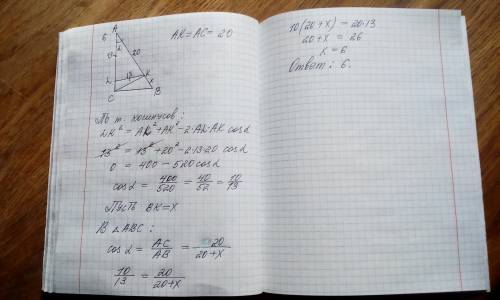 A
6.
α
13
20
13
L
K
x
C
B
AK = AC = 20
По т. косинусов:
LK² = AL² + AK² - 2·AL·AK cosα
13² = 13² + 20² - 2·13·20 cosα
0 = 400 - 520cosα
cosα = 400/520 = 40/52 = 10/13
Пусть BK = x
В △ABC:
cosα = AC/AB = 20/(20+x)
10/13 = 20/(20+x)
10(20+x) = 20·13
20+x = 26
x = 6
Ответ: 6.